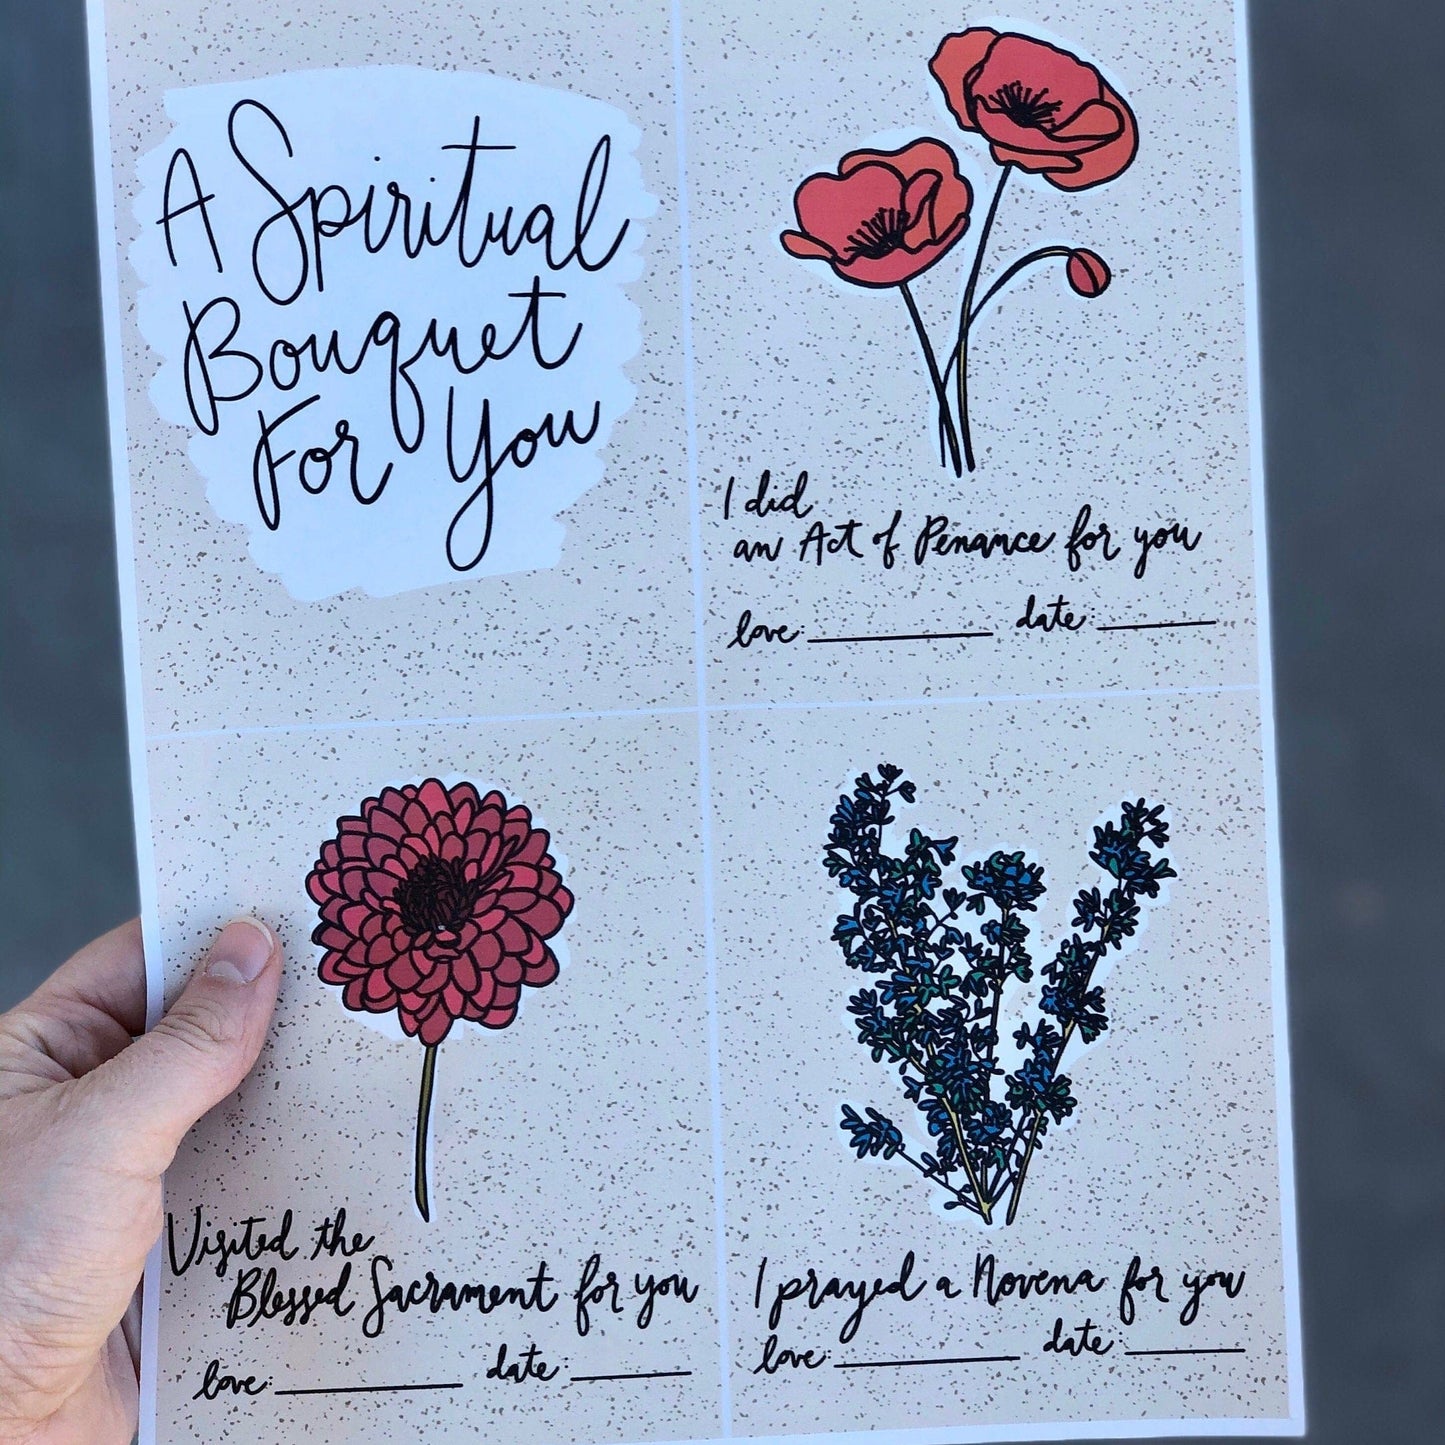 A Spiritual
Bouquet
For You
I did
an Act of Penance for you
love: date:
Visited the
Blessed Sacrament for you
love: date:
I prayed a Novena for you
love: date: